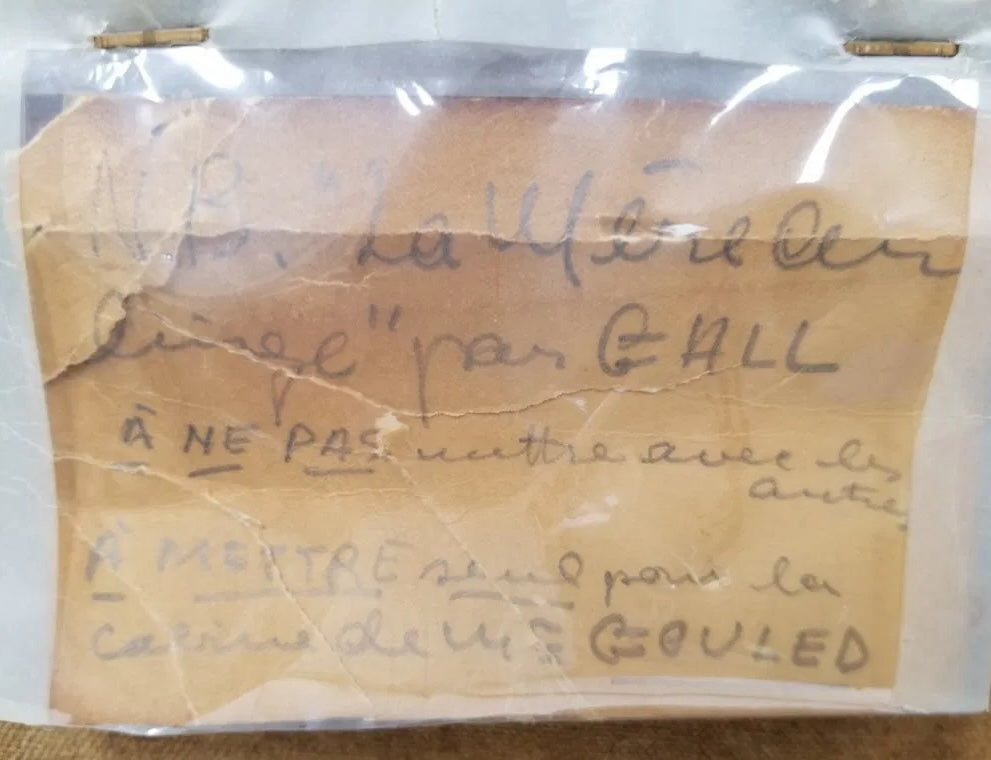 N.B. "La Mère au
linge" par GALL
À NE PAS mettre avec les
autres
À METTRE seul pour la
cabine de Mᴱ GOULED